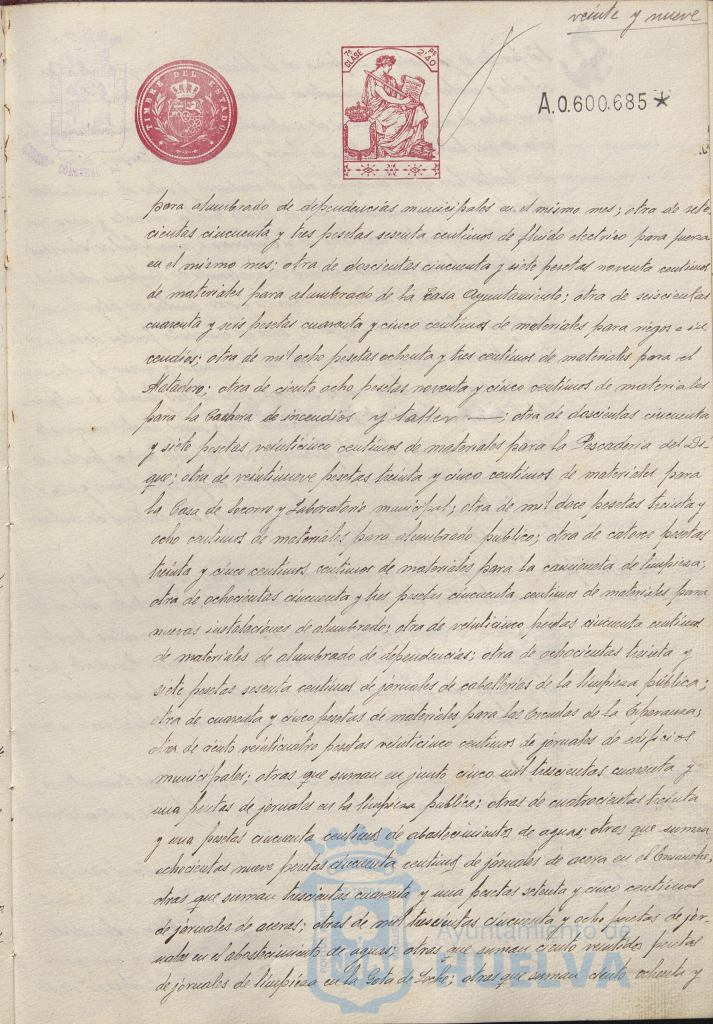 veinte y nueve
TIMBRE DEL ESTADO
7ª CLASE
Ps 2'40
A.0.600.685★
para alumbrado de dependencias municipales en el mismo mes; otra de sete-
cientas cincuenta y tres pesetas sesenta centimos de fluido electrico para fuerza
en el mismo mes; otra de doscientas cincuenta y siete pesetas noventa centimos
de materiales para alumbrado de la Casa Ayuntamiento; otra de seiscientas
cuarenta y seis pesetas cuarenta y cinco centimos de materiales para riegos e in-
cendios; otra de mil ocho pesetas ochenta y tres centimos de materiales para el
Matadero; otra de ciento ocho pesetas noventa y cinco centimos de materiales
para la de incendios y taller; otra de doscientas cincuenta
y siete pesetas veinticinco centimos de materiales para la Pescaderia del Di-
que; otra de veintinueve pesetas treinta y cinco centimos de materiales para
la Casa de Socorro y Laboratorio municipal; otra de mil doce pesetas treinta y
ocho centimos de materiales para alumbrado publico; otra de catorce pesetas
treinta y cinco centimos centimos de materiales para la camioneta de limpieza;
otra de ochocientas cincuenta y tres pesetas cincuenta centimos de materiales para
nuevas instalaciones de alumbrado; otra de veinticinco pesetas cincuenta centimos
de materiales de alumbrado de dependencias; otra de ochocientas treinta y
siete pesetas sesenta centimos de jornales de caballerias de la limpieza pública;
otra de cuarenta y cinco pesetas de materiales para las Escuelas de la Esperanza;
otra de ciento veinticuatro pesetas veinticinco centimos de jornales de edificios
municipales; otras que suman en junto cinco mil trescientas cuarenta y
una pesetas de jornales en la limpieza publica; otras de cuatrocientas treinta
y una pesetas cincuenta centimos de abastecimientos de aguas; otras que suman
ochocientas nueve pesetas cincuenta centimos de jornales de acera en el Ensanche;
otras que suman trescientas cuarenta y una pesetas setenta y cinco centimos
de jornales de aceras; otras de mil trescientas cincuenta y ocho pesetas de jor-
nales en el abastecimiento de aguas; otras que suman ciento ventidos pesetas
de jornales de limpieza en la Gota de Leche; otras que suman ciento ochenta y
Ayuntamiento de
HUELVA